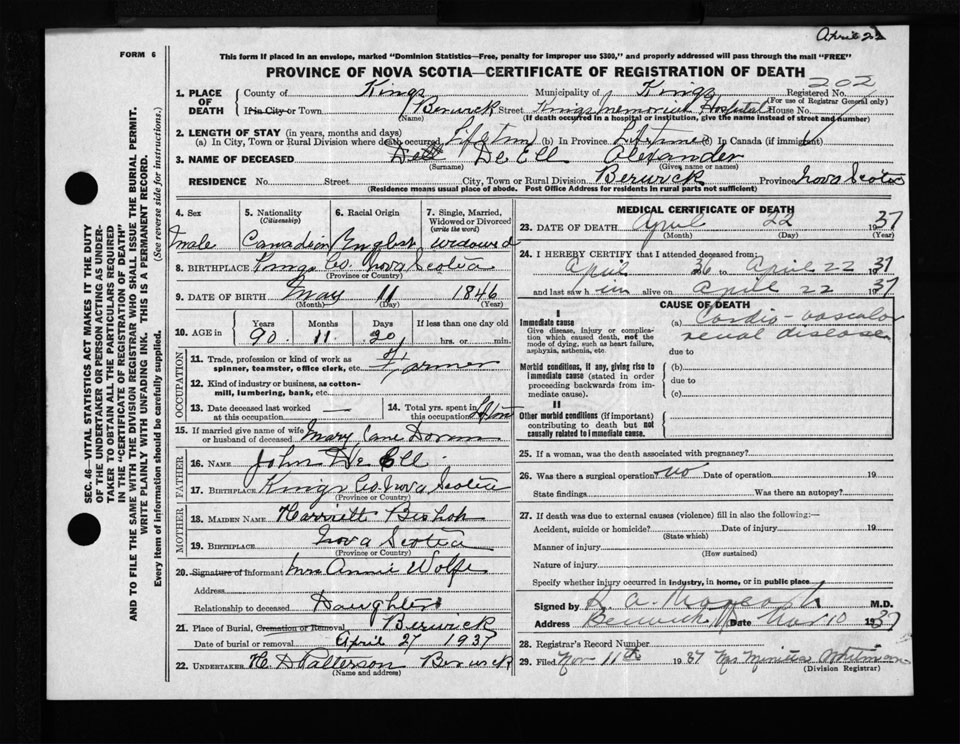 April 22
FORM 6
This form if placed in an envelope, marked "Dominion Statistics—Free, penalty for improper use $300," and properly addressed will pass through the mail "FREE"
PROVINCE OF NOVA SCOTIA—CERTIFICATE OF REGISTRATION OF DEATH
202
1. PLACE OF DEATH County of Kings Municipality of Kings Registered No.
(For use of Registrar General only)
If in City or Town Berwick Street Kings Memorial Hospital House No.
(Name) (If death occurred in a hospital or institution, give the name instead of street and number)
2. LENGTH OF STAY (in years, months and days)
(a) In City, Town or Rural Division where death occurred Lifetime (b) In Province Lifetime (c) In Canada (if immigrant)
3. NAME OF DECEASED De Ell Alexander
(Surname) (Given name or names)
RESIDENCE No. Street City, Town or Rural Division Berwick Province Nova Scotia
(Residence means usual place of abode. Post Office Address for residents in rural parts not sufficient)
4. Sex 5. Nationality (Citizenship) 6. Racial Origin 7. Single, Married, Widowed or Divorced (write the word)
male Canadian English widowed
8. BIRTHPLACE Kings Co. Nova Scotia
(Province or Country)
9. DATE OF BIRTH May 11 1846
(Month) (Day) (Year)
10. AGE in Years Months Days If less than one day old
90 11 20 hrs. or min.
OCCUPATION
11. Trade, profession or kind of work as spinner, teamster, office clerk, etc. Farmer
12. Kind of industry or business, as cotton-mill, lumbering, bank, etc.
13. Date deceased last worked at this occupation — 14. Total yrs. spent in this occupation
15. If married give name of wife or husband of deceased Mary Jane
FATHER
16. NAME John De Ell
17. BIRTHPLACE Kings Co. Nova Scotia
(Province or Country)
MOTHER
18. MAIDEN NAME Harriett Bishop
19. BIRTHPLACE Nova Scotia
(Province or Country)
20. Signature of Informant Mrs Annie Wolfe
Address
Relationship to deceased Daughter
21. Place of Burial, Cremation or Removal Berwick
Date of burial or removal April 27 1937
22. UNDERTAKER H. D Patterson Berwick
(Name and address)
MEDICAL CERTIFICATE OF DEATH
23. DATE OF DEATH April 22 1937
(Month) (Day) (Year)
24. I HEREBY CERTIFY that I attended deceased from:
April 36 to April 22 1937
and last saw h im alive on April 22 1937
CAUSE OF DEATH
I
Immediate cause (a) Cardio-vascular
Give disease, injury or complication which caused death, not the mode of dying, such as heart failure, asphyxia, asthenia, etc. renal disease
due to
Morbid conditions, if any, giving rise to immediate cause (stated in order proceeding backwards from immediate cause). (b)
due to
(c)
II
Other morbid conditions (if important) contributing to death but not causally related to immediate cause.
25. If a woman, was the death associated with pregnancy?
26. Was there a surgical operation? no Date of operation 19
State findings Was there an autopsy?
27. If death was due to external causes (violence) fill in also the following:—
Accident, suicide or homicide? Date of injury 19
(State which)
Manner of injury
(How sustained)
Nature of injury
Specify whether injury occurred in industry, in home, or in public place
Signed by M.D.
Address Berwick Date Nov 10 1937
28. Registrar's Record Number
29. Filed Nov 11th 1937 Whitman
(Division Registrar)
SEC. 46—VITAL STATISTICS ACT MAKES IT THE DUTY
OF THE UNDERTAKER OR PERSON ACTING AS UNDER-
TAKER TO OBTAIN ALL THE PARTICULARS REQUIRED
IN THE "CERTIFICATE OF REGISTRATION OF DEATH"
AND TO FILE THE SAME WITH THE DIVISION REGISTRAR WHO SHALL ISSUE THE BURIAL PERMIT.
WRITE PLAINLY WITH UNFADING INK. THIS IS A PERMANENT RECORD.
Every item of information should be carefully supplied. (See reverse side for instructions.)